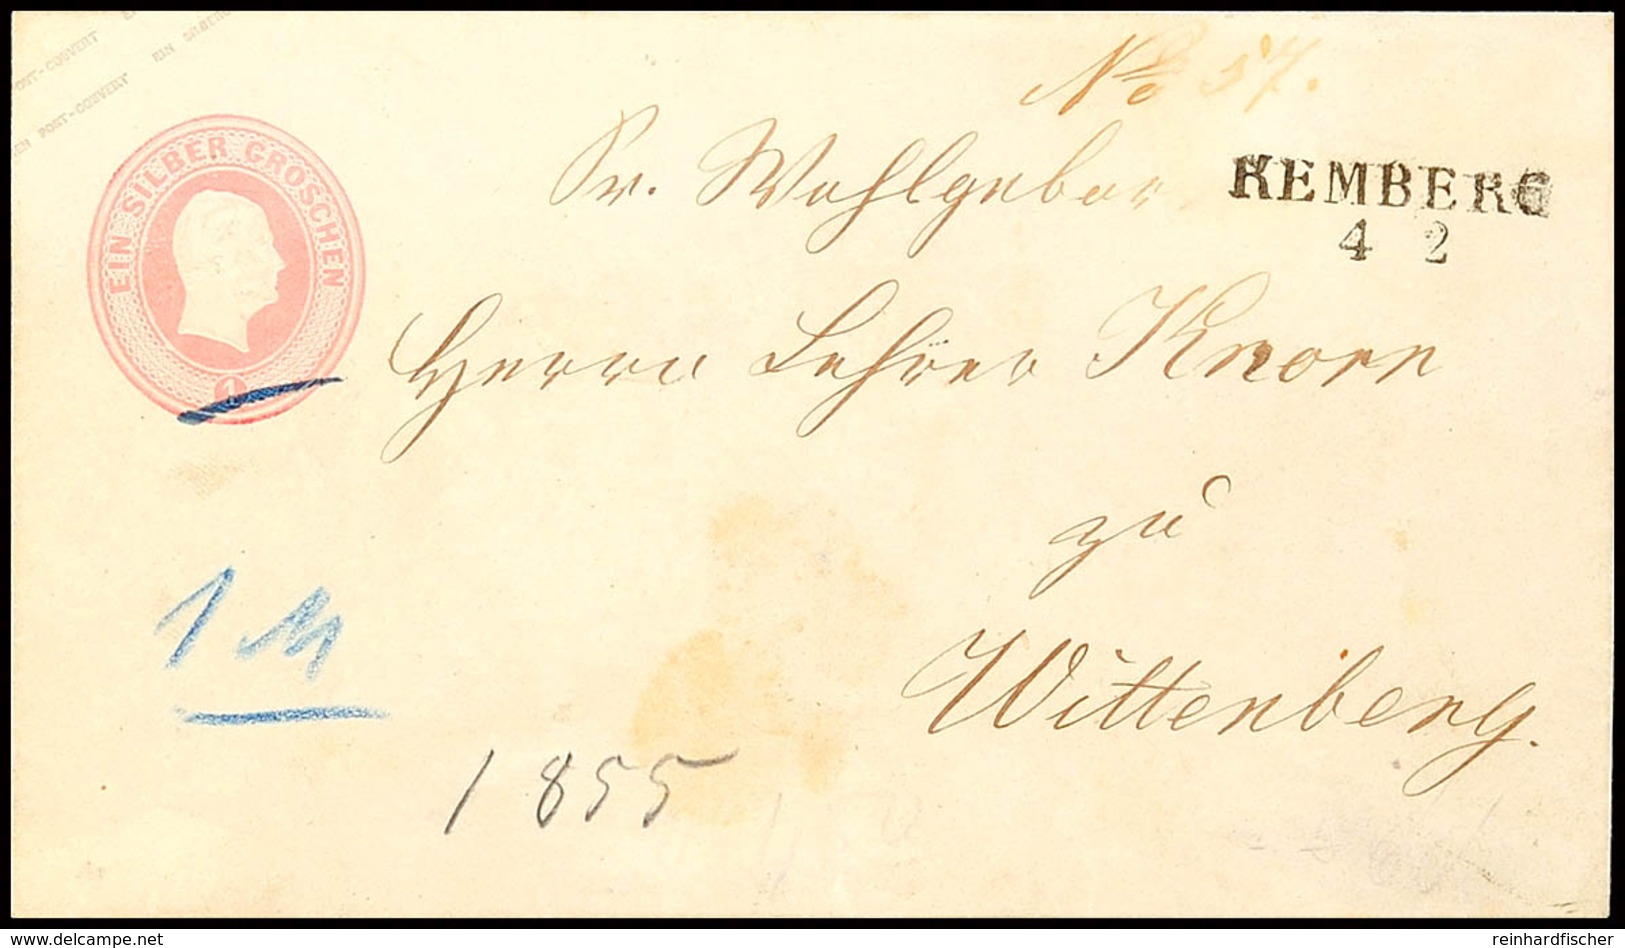 POST-COUVERT EI
EN POST-COUVERT EIN SILBERG
No 57.
EIN SILBER GROSCHEN
1
Sr. Wohlgebor
KEMBERG
4 2
Herrn Lehrer Knorr
zu
Wittenberg.
1 M
1855
delcampe.net
reinhardfischer